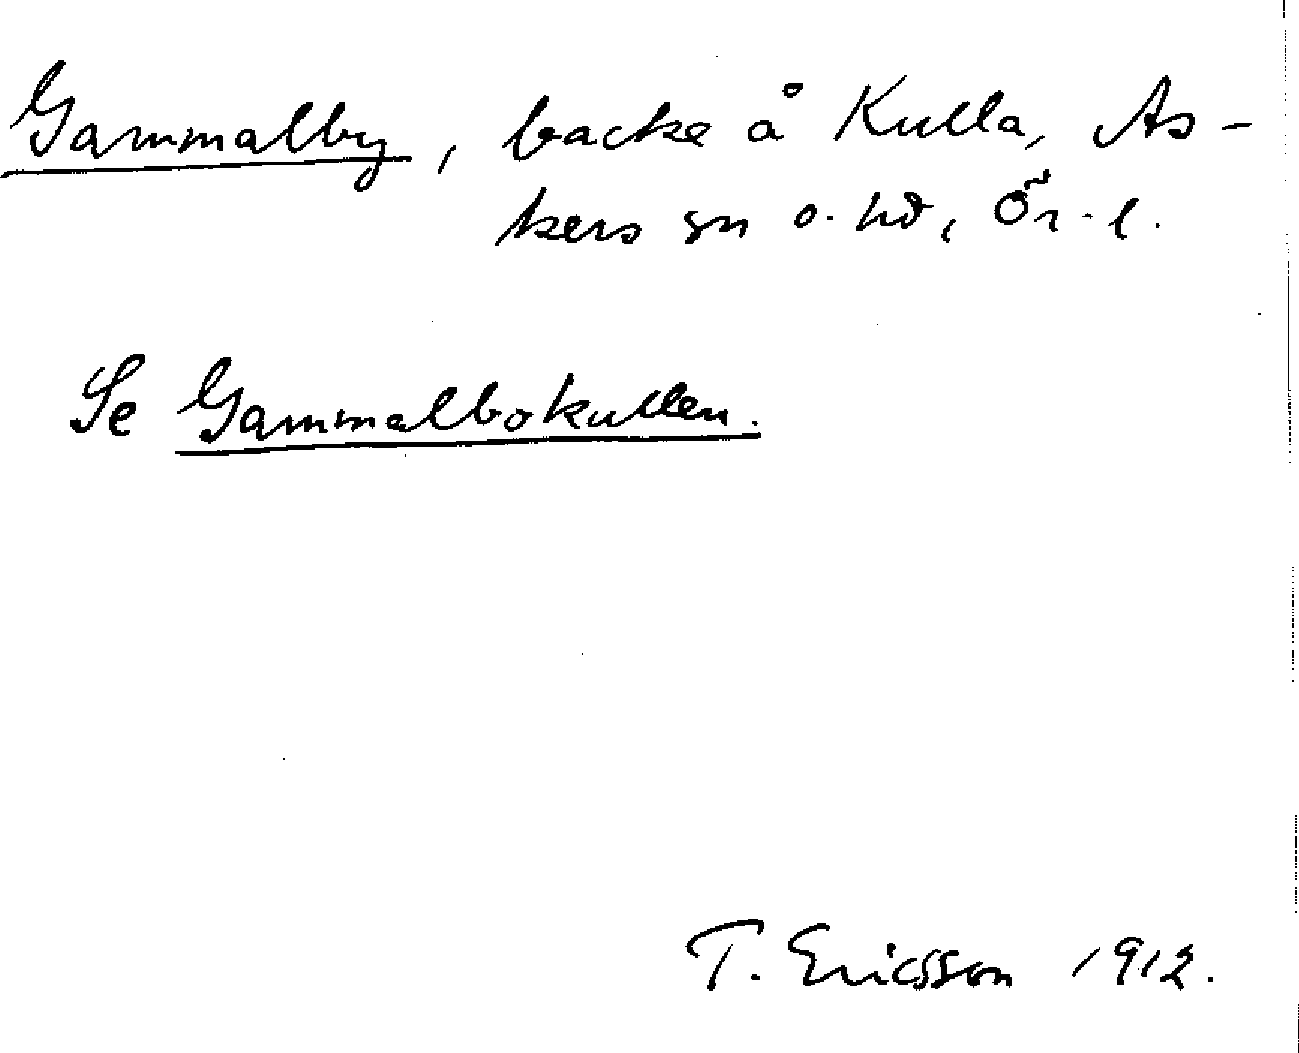 Gammalby, backe å Kulla, As-
kers sn o. hd, Ör. l.
Se Gammalbokullen.
T. Ericsson 1912.